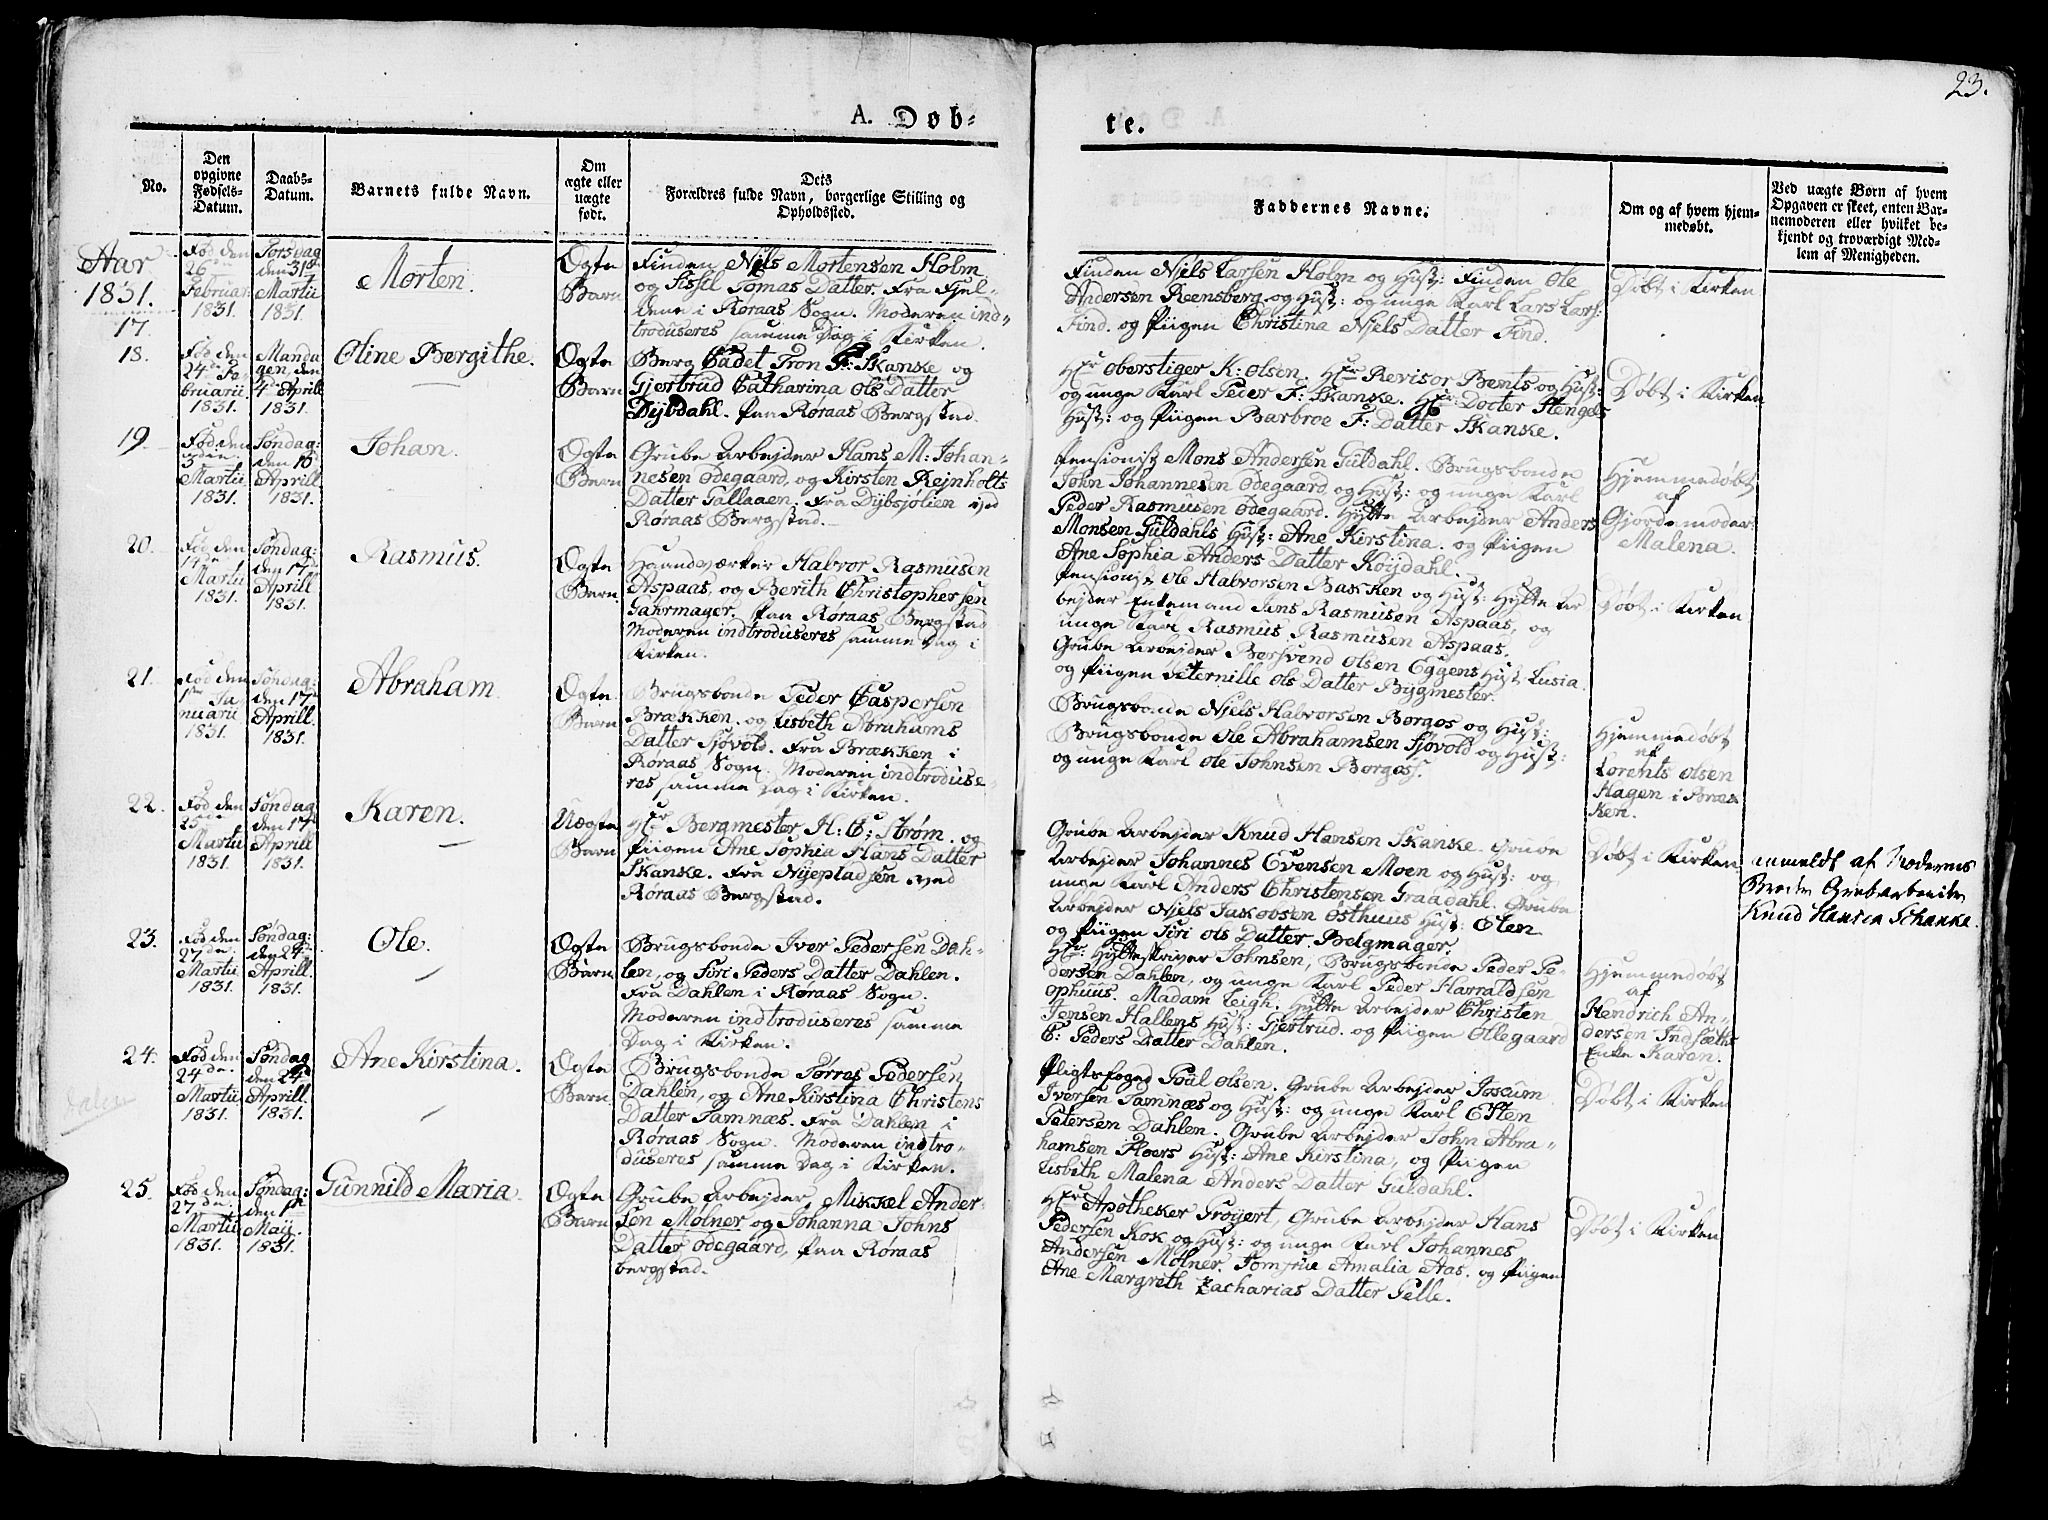 23.
A. Døb-
te.
No.
Den opgivne Fødsels-Datum.
Daabs-Datum.
Barnets fulde Navn.
Om ægte eller uægte født.
Dets
Forældres fulde Navn, borgerlige Stilling og
Opholdssted.
Faddernes Navne.
Om og af hvem hjem-
medøbt.
Ved uægte Børn af hvem
Opgaven er skeet, enten Bar-
nemoderen eller hvilket be-
kjendt og troværdigt Med-
lem af Menigheden.
Aar
1831.
17.
Fød den
26de
Februar
1831.
Torsdag
den 31te
Martii
1831.
Morten.
Ægte
Barn
Finden Niels Mortensen Holm
og Sissil Tomas Datter. Fra Fjel-
dene i Røraas Sogn. Moderen ind-
troduseres samme Dag i Kirken.
Finden Niels Larsen Holm og Hust: Finden Ole
Andersen Reensberg og Hust: og unge Karl Lars Lars:
Find. og Piigen Christina Niels Datter Find.
Døbt i Kirken
18.
Fød den
24de Fe-
bruarii
1831.
Manda
gen, den
4de Aprill
1831.
Oline Bergithe.
Ægte
Barn
Berg Cadet Tron F: Skanke og
Gjertrud Catharina Ols Datter
Dybdahl. Paa Røraas Bergstad.
Hr Oberstiger K: Olsen. Hr Revisor Bents og Hust:
og unge Karl Peder F: Skanke. Hr: Docter Stengels
Hust: og Piigen Barbroe F: Datter Skanke.
Døbt i Kirken
19.
Fød den
3den
Martii
1831.
Søndag:
den 10de
Aprill
1831.
Johan.
Ægte
Barn
Grube Arbejder Hans M: Johan-
nesen Ødegaard, og Kirsten Rejnholts
Datter Gallaaen. Fra Dybsjølien ved
Røraas Bergstad.
Pensionist Mons Andersen Guldahl. Brugsbonde
John Johannesen Ødegaard og Hust: og unge Karl
Peder Rasmusen Ødegaard. Hytte Arbejder Anders
Monsen Guldahls Hust: Ane Kirstina. og Piigen
Ane Sophia Anders Datter Køijdahl.
Hjemmedøbt
af
Gjordemoder:
Malena.
20.
Fød den
14de
Martii
1831.
Søndag:
den 17de
Aprill
1831.
Rasmus.
Ægte
Barn.
Haandværker Halvor Rasmusen
Aspaas, og Berith Christophersen
Gahrmager. Paa Røraas Bergstad
Moderen indtroduseres samme Dag i
Kirken.
Pensionist Ole Halvorsen Bakken og Hust: Hytte Ar
bejder Enkemand Jens Rasmusen Aspaas, og
unge Karl Rasmus Rasmusen Aspaas.
Grube Arbejder Bersvend Olsen Eggens Hust: Lusia.
og Piigen Peternille Ols Datter Bygmester.
Døbt i Kirken
21.
Fød den
1ste Ja
nuarii
1831.
Søndag:
den 17de
Aprill.
1831.
Abraham
Ægte
Barn
Brugsbonde Peder Caspersen
Brækken. og Lisbeth Abrahams
Datter Sjøvold. Fra Brækken i
Røraas Sogn. Moderen indtroduse-
res samme Dag i Kirken.
Brugsbonde Niels Halvorsen Borgos og Hust:
Brugsbonde Ole Abrahamsen Sjøvold og Hust:
og unge Karl Ole Johnsen Borgoss.
Hjemmedøbt
af
Lorents Olsen
Hagen i Bræk
ken.
22.
Fød den
25de
Martii
1831.
Søndag
den 17de
Aprill
1831.
Karen.
Uægte
Barn
Hr Bergmester H: C: Strøm. og
Piigen Ane Sophia Hans Datter
Skanke. Fra Nyepladsen ved
Røraas Bergstad.
Grube Arbejder Knud Hansen Skanke. Grube
Arbejder Johannes Evensen Moen og Hust: og
unge Karl Anders Christensen Graadahl. Grube
Arbejder Niels Jakobsen Østhuus Hust: Elen
og Piigen Siri Ols Datter Belgmager.
Døbt i Kirken
anmeldt af Moderens
Broder Grubearbeider
Knud Hansen Schanke.
23.
Fød den
27de
Martii
1831.
Søndag:
den 24de
Aprill.
1831.
Ole.
Ægte
Barn
Brugsbonde Iver Pedersen Dah-
len, og Siri Peders Datter Dahlen.
Fra Dahlen i Røraas Sogn.
Moderen indtroduseres samme
Dag i Kirken.
Hr: Hytteskriver Johnsen, Brugsbonde Peder Pe-
dersen Dahlen, og unge Karl Peder Harraldsen
Ophuus. Madam Leigh. Hytte Arbejder Christen
Jensen Hallens Hust: Gjertrud. og Piigen Ollegaard
C: Peders Datter Dahlen.
Hjemmedøbt
af
Hendrich An-
dersen Indsæths
Enke Karen.
24.
Fød den
24de
Martii
1831.
Søndag
den 24de
Aprill.
1831.
Ane Kirstina.
Ægte
Barn
Brugsbonde Tørres Pedersen
Dahlen, og Ane Kirstina Christens
Datter Tamnæs. Fra Dahlen i
Røraas Sogn. Moderen indtro-
duseres samme Dag i Kirken.
Pligtsfoged Poul Olsen. Grube Arbejder Joscum
Iversen Tamnæs og Hust: og unge Karl Esten
Petersen Dahlen. Grube Arbejder John Abra-
hamsen Floers Hust: Ane Kirstina, og Piigen
Lisbeth Malena Anders Datter Guldahl.
Døbt i Kirken
25.
Fød den
27de
Martii
1831.
Søndag:
den 1ste
Maij.
1831.
Gunnild Maria
Ægte
Barn
Grube Arbejder Mikkel Ander-
sen Mølner og Johanna Johns
Datter Ødegaard, Paa Røraas
bergstad.
Hr Apotheker Grøyert, Grube Arbejder Hans
Pedersen Kok og Hust: og unge Karl Johannes
Andersen Mølner. Jomfrue Amalia Aas. og Piigen
Ane Margrith Zacharias Datter Gelle.
Døbt i Kirken